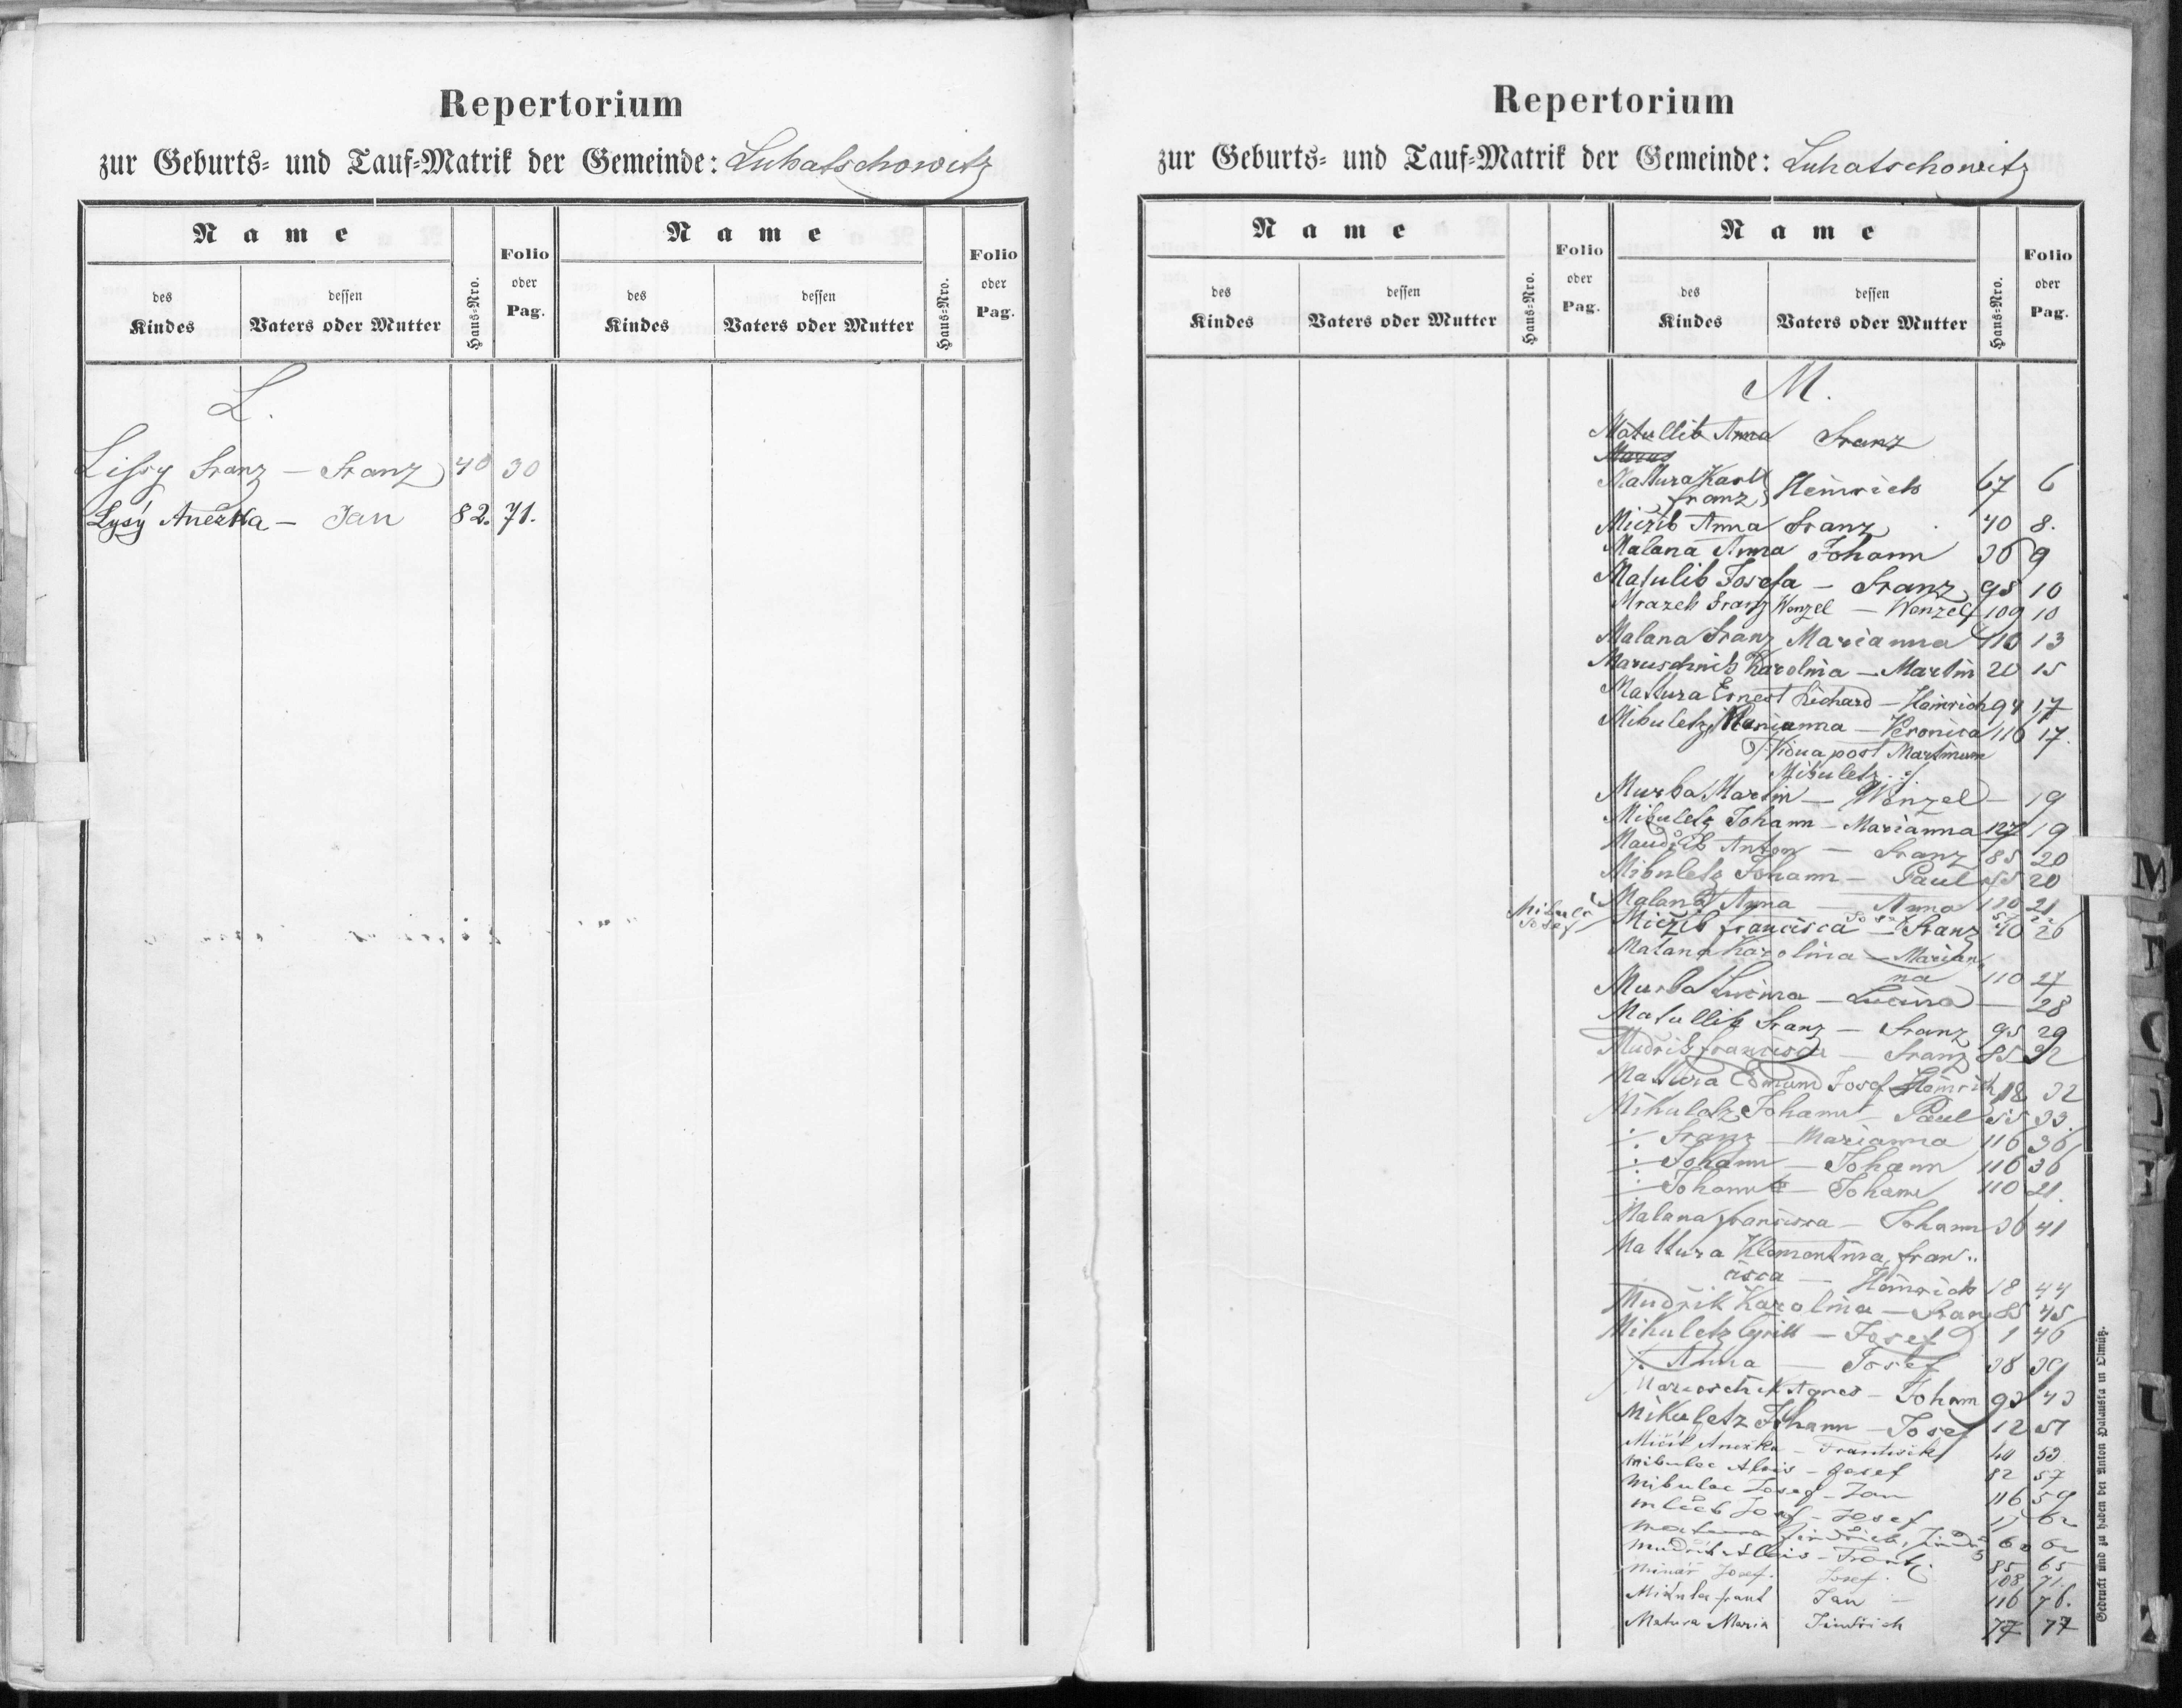 Repertorium
zur Geburts- und Tauf-Matrik der Gemeinde: Luhatschowitz
Name Haus-Nro. Folio oder Pag. Name Haus-Nro. Folio oder Pag.
des Kindes dessen Vaters oder Mutter des Kindes dessen Vaters oder Mutter
L.
Lissy Franz — Franz 40 30
Lysý Anežka — Jan 82. 71.
Repertorium
zur Geburts- und Tauf-Matrik der Gemeinde: Luhatschowitz
Name Haus-Nro. Folio oder Pag. Name Haus-Nro. Folio oder Pag.
des Kindes dessen Vaters oder Mutter des Kindes dessen Vaters oder Mutter
M.
Matullik Anna Franz
Mattura Karl
Franz Heinrich 67 6
Anna Franz 40 8.
Malana Anna Johann 36 9
Matulik Josefa — Franz 95 10
Mrazek Franz Wenzel — Wenzel 109 10
Malana Franz Marianna 110 13
Maruschnik Karolina — Martin 20 15
Mattura Ernest Richard — Heinrich 94 17
Mikuletz Marianna — Veronica 116 17.
Vidua post Martinum
Mikuletz
Murka Martin — Wenzel — 19
Mikuletz Johann — Marianna 127 19
Anton — Franz 85 20
Mikuletz Johann — Paul 55 20
Malana Anna — Anna 110 21
Josef
Francisca — Franz 40 26
Malana Karolina — Marian
na 110 27
Lucina — Lucina — 28
Matullik Franz — Franz 95 29
Mudřik Francisca — Franz 85 32
Mattura Edmund Josef Heinrich 18 32
Mikuletz Johann — Paul 55 33.
Franz — Marianna 116 36
Johann — Johann 116 36
Johann — Johann 110 21.
Malana Francisca — Johann 36 41
Mattura Klementina Fran..
cisca — Heinrich 18 44
Mudřik Karolina — Franz 85 45
Mikuletz Cyrill — Josef 1 46
Anna — Josef 38 39
Maruschik Agnes — Johann 93 43
Mikuletz Johann — Josef 12 51
Anežka — František 40 53
Mikulec Alois — Josef 82 57
Mikulec Josef — Jan 116 59
Josef — Josef
Jindřich, 60
Mudřík Alois — Frant. 85 65
Minář Josef. Josef. 108 71.
Mikulec Frant Jan — 116 76.
Matura Maria Jindřich 77 77
Gedruckt und zu haben bei Anton Halauska in Olmütz.
M